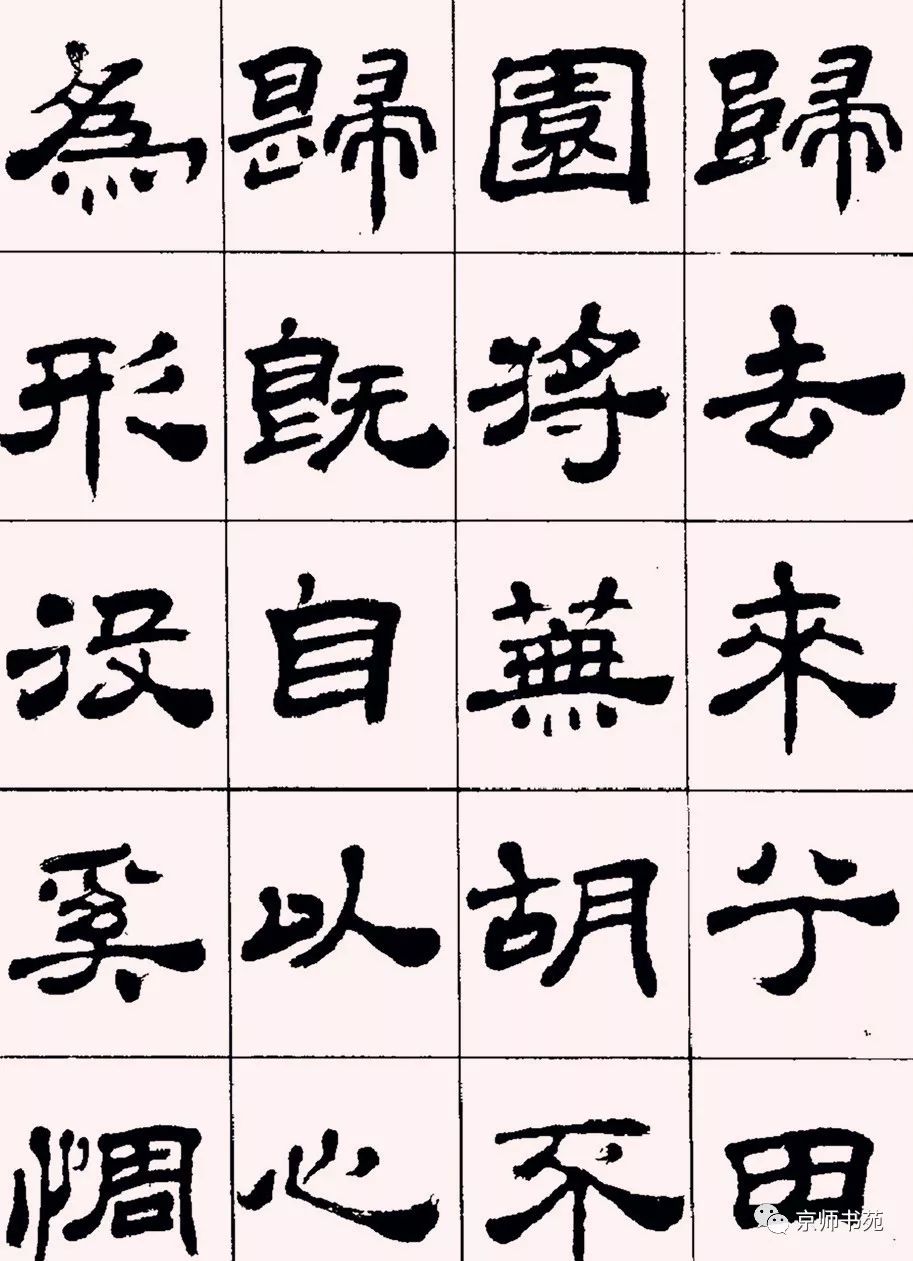 歸去來兮田
園將蕪胡不
歸既自以心
為形役奚惆
京师书苑